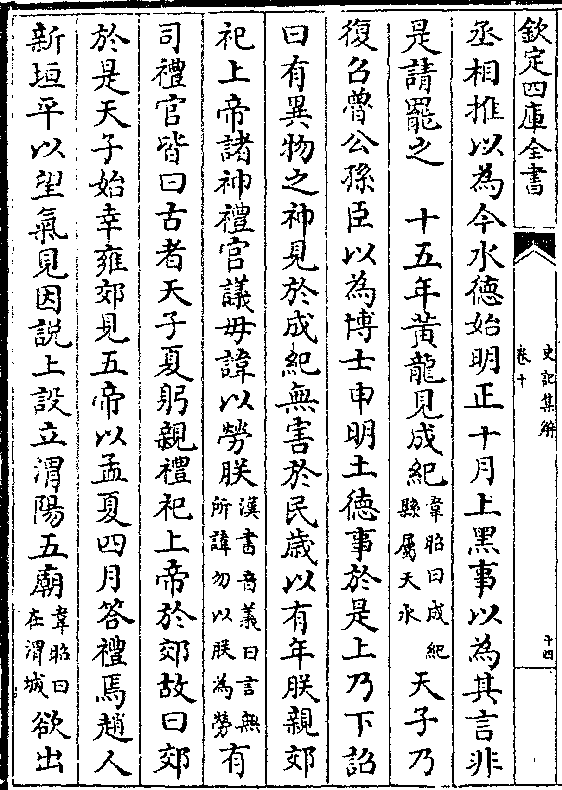 欽定四庫全書
史記集解
卷十
十四
丞相推以為今水德始明正十月上黑事以為其言非
是請罷之 十五年黃龍見成紀韋昭曰成紀縣屬天水天子乃
復召魯公孫臣以為博士申明土德事於是上乃下詔
曰有異物之神見於成紀無害於民歲以有年朕親郊
祀上帝諸神禮官議毋諱以勞朕漢書音義曰言無所諱勿以朕為勞有
司禮官皆曰古者天子夏躬親禮祀上帝於郊故曰郊
於是天子始幸雍郊見五帝以孟夏四月答禮焉趙人
新垣平以望氣見因説上設立渭陽五廟韋昭曰在渭城欲出